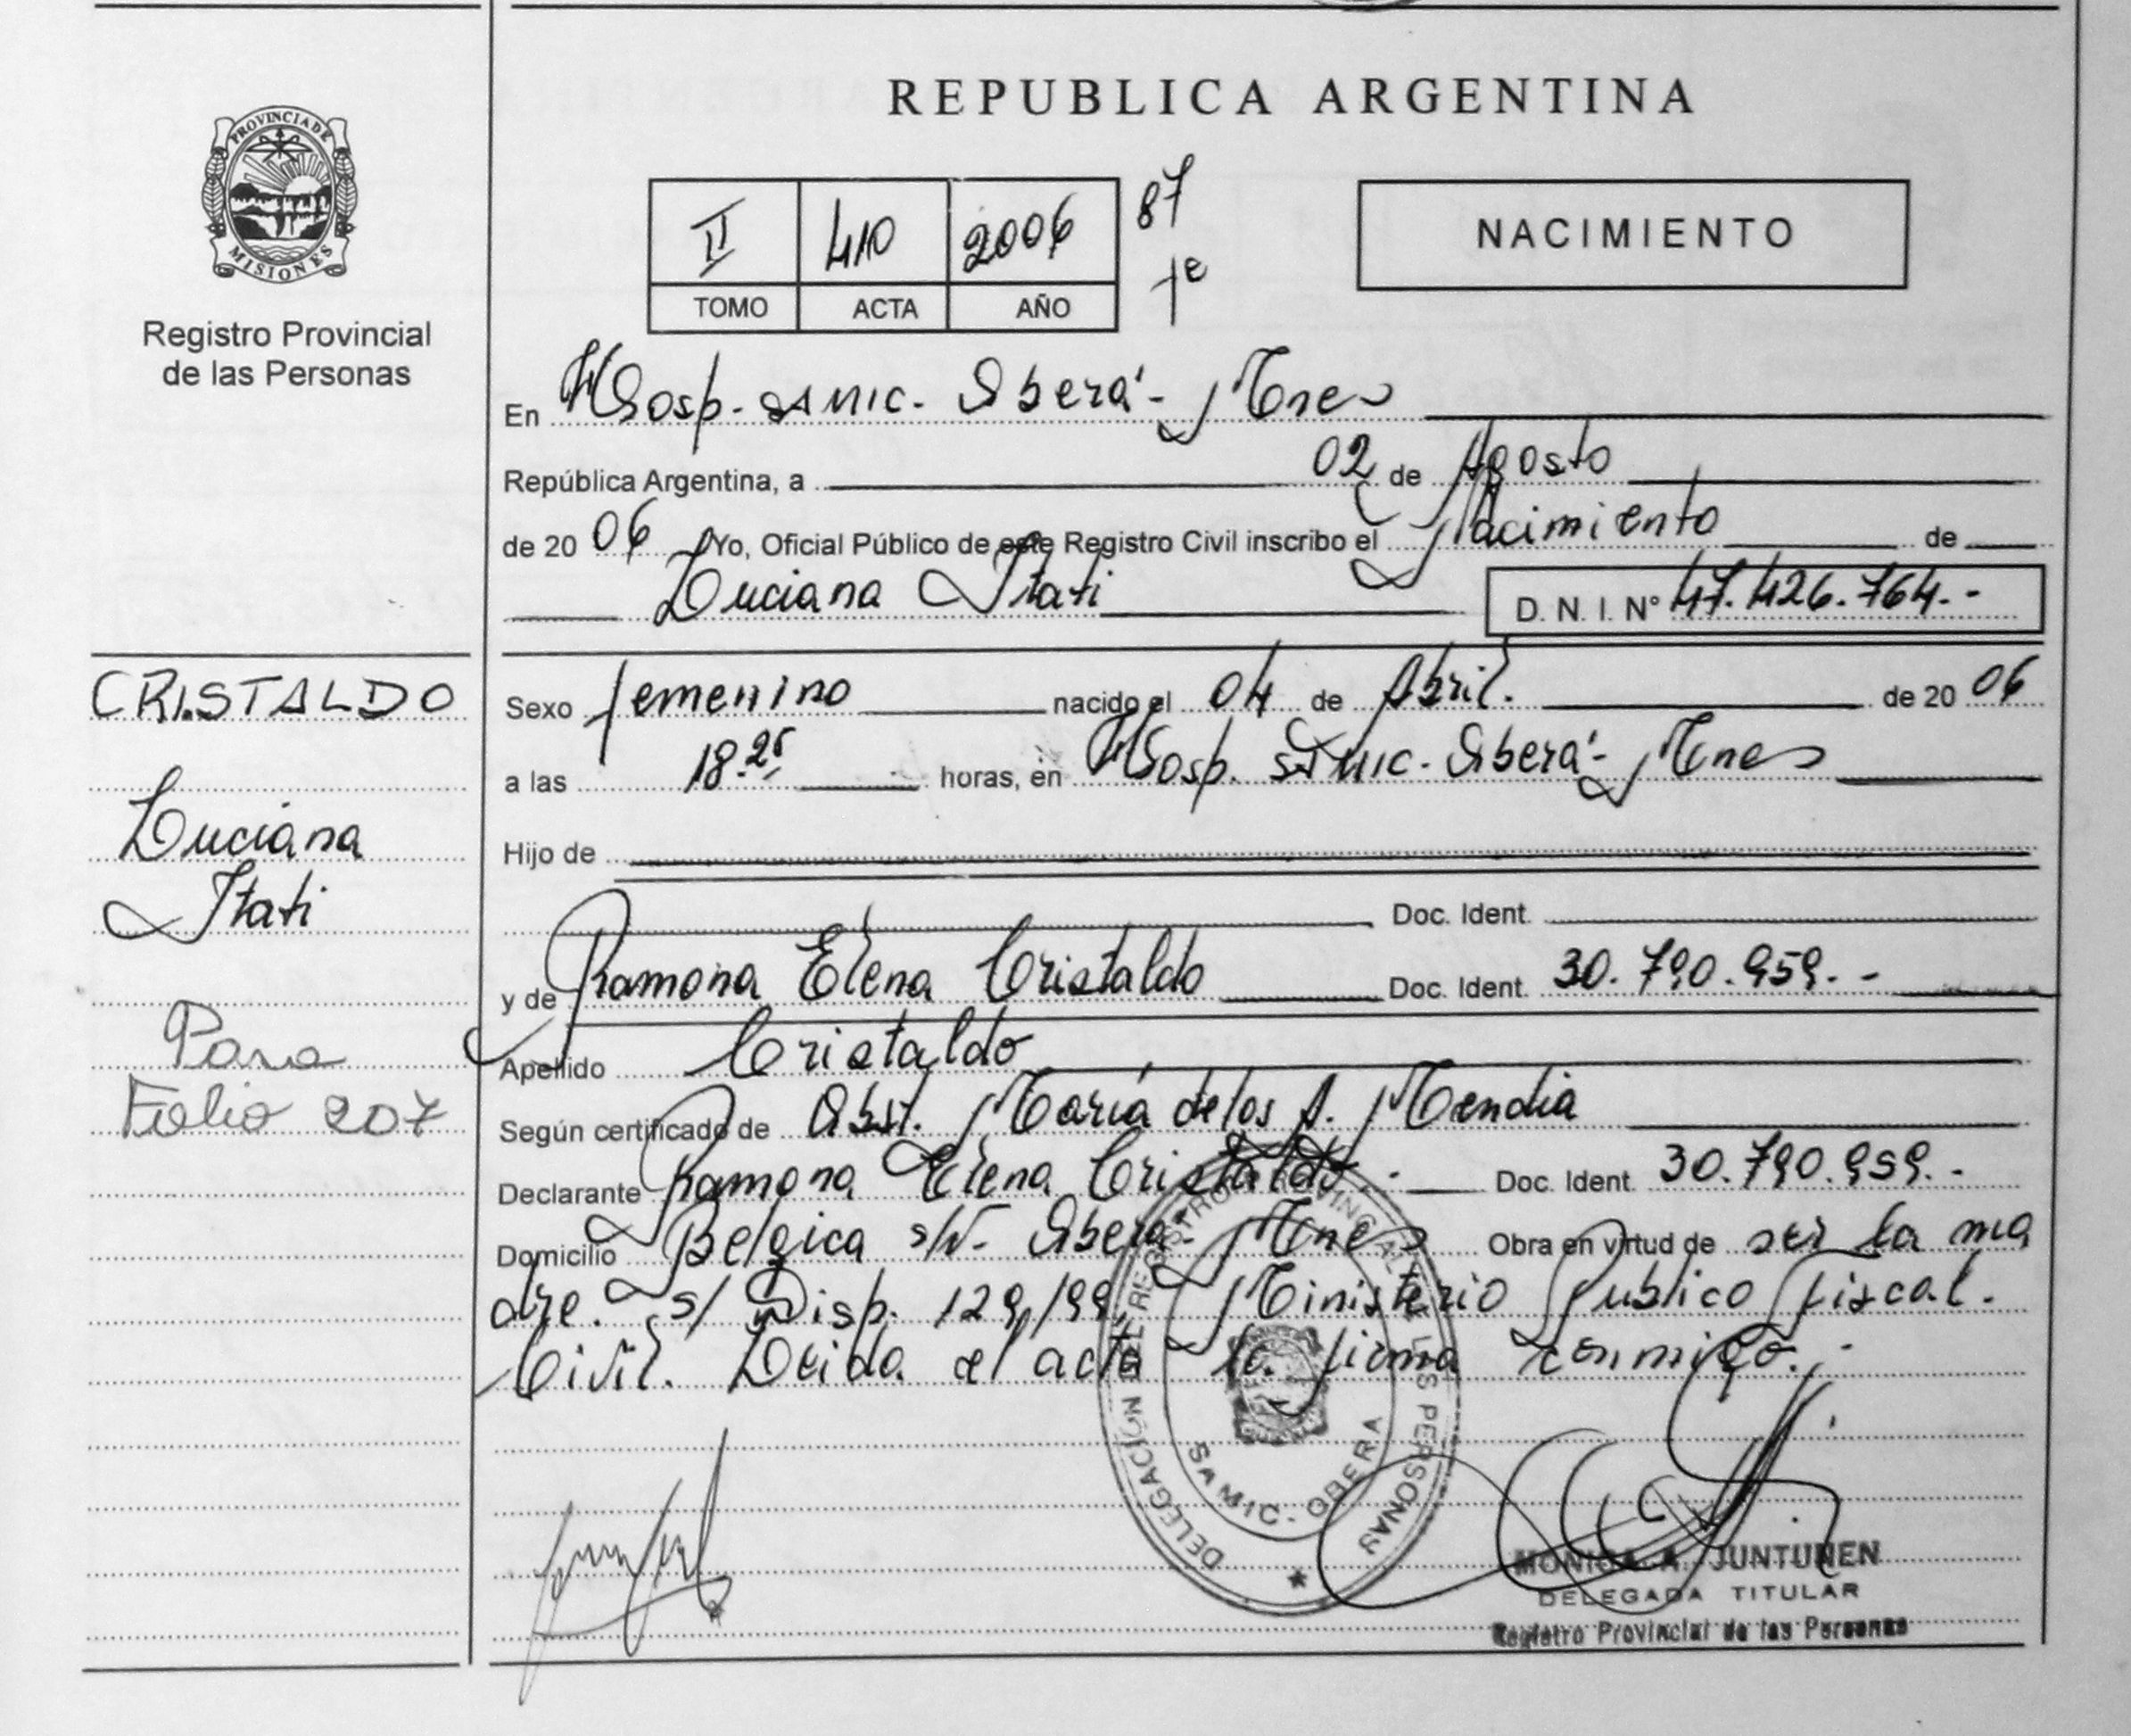 PROVINCIA DE
MISIONES
Registro Provincial
de las Personas
REPUBLICA ARGENTINA
II 410 2006 87
TOMO ACTA AÑO
Fº
NACIMIENTO
En Hosp. SAMIC. Oberá - Mnes
República Argentina, a 02 de Agosto
de 20 06 Yo, Oficial Público de este Registro Civil inscribo el Nacimiento de
Luciana Itati D. N. I. Nº 47.426.764.-
CRISTALDO
Luciana
Itati
Pasa
Folio 207
Sexo femenino nacido el 04 de Abril. de 20 06
a las 18.25 horas, en Hosp. SAMIC. Oberá - Mnes
Hijo de
Doc. Ident.
y de Ramona Elena Cristaldo Doc. Ident. 30.790.959.-
Apellido Cristaldo
Según certificado de Obst. María de los A. Mendia
Declarante Ramona Elena Cristaldo.- Doc. Ident. 30.790.959.-
Domicilio Belgica s/Nº Oberá - Mnes Obra en virtud de ser la ma
dre. s/ Disp. 129/99, Ministerio Publico Fiscal.
Civil. Leida el acta la firma conmigo.-
DELEGACIÓN DEL REGISTRO PROVINCIAL DE LAS PERSONAS
SAMIC - OBERA
MONICA A. JUNTUNEN
DELEGADA TITULAR
Registro Provincial de las Personas